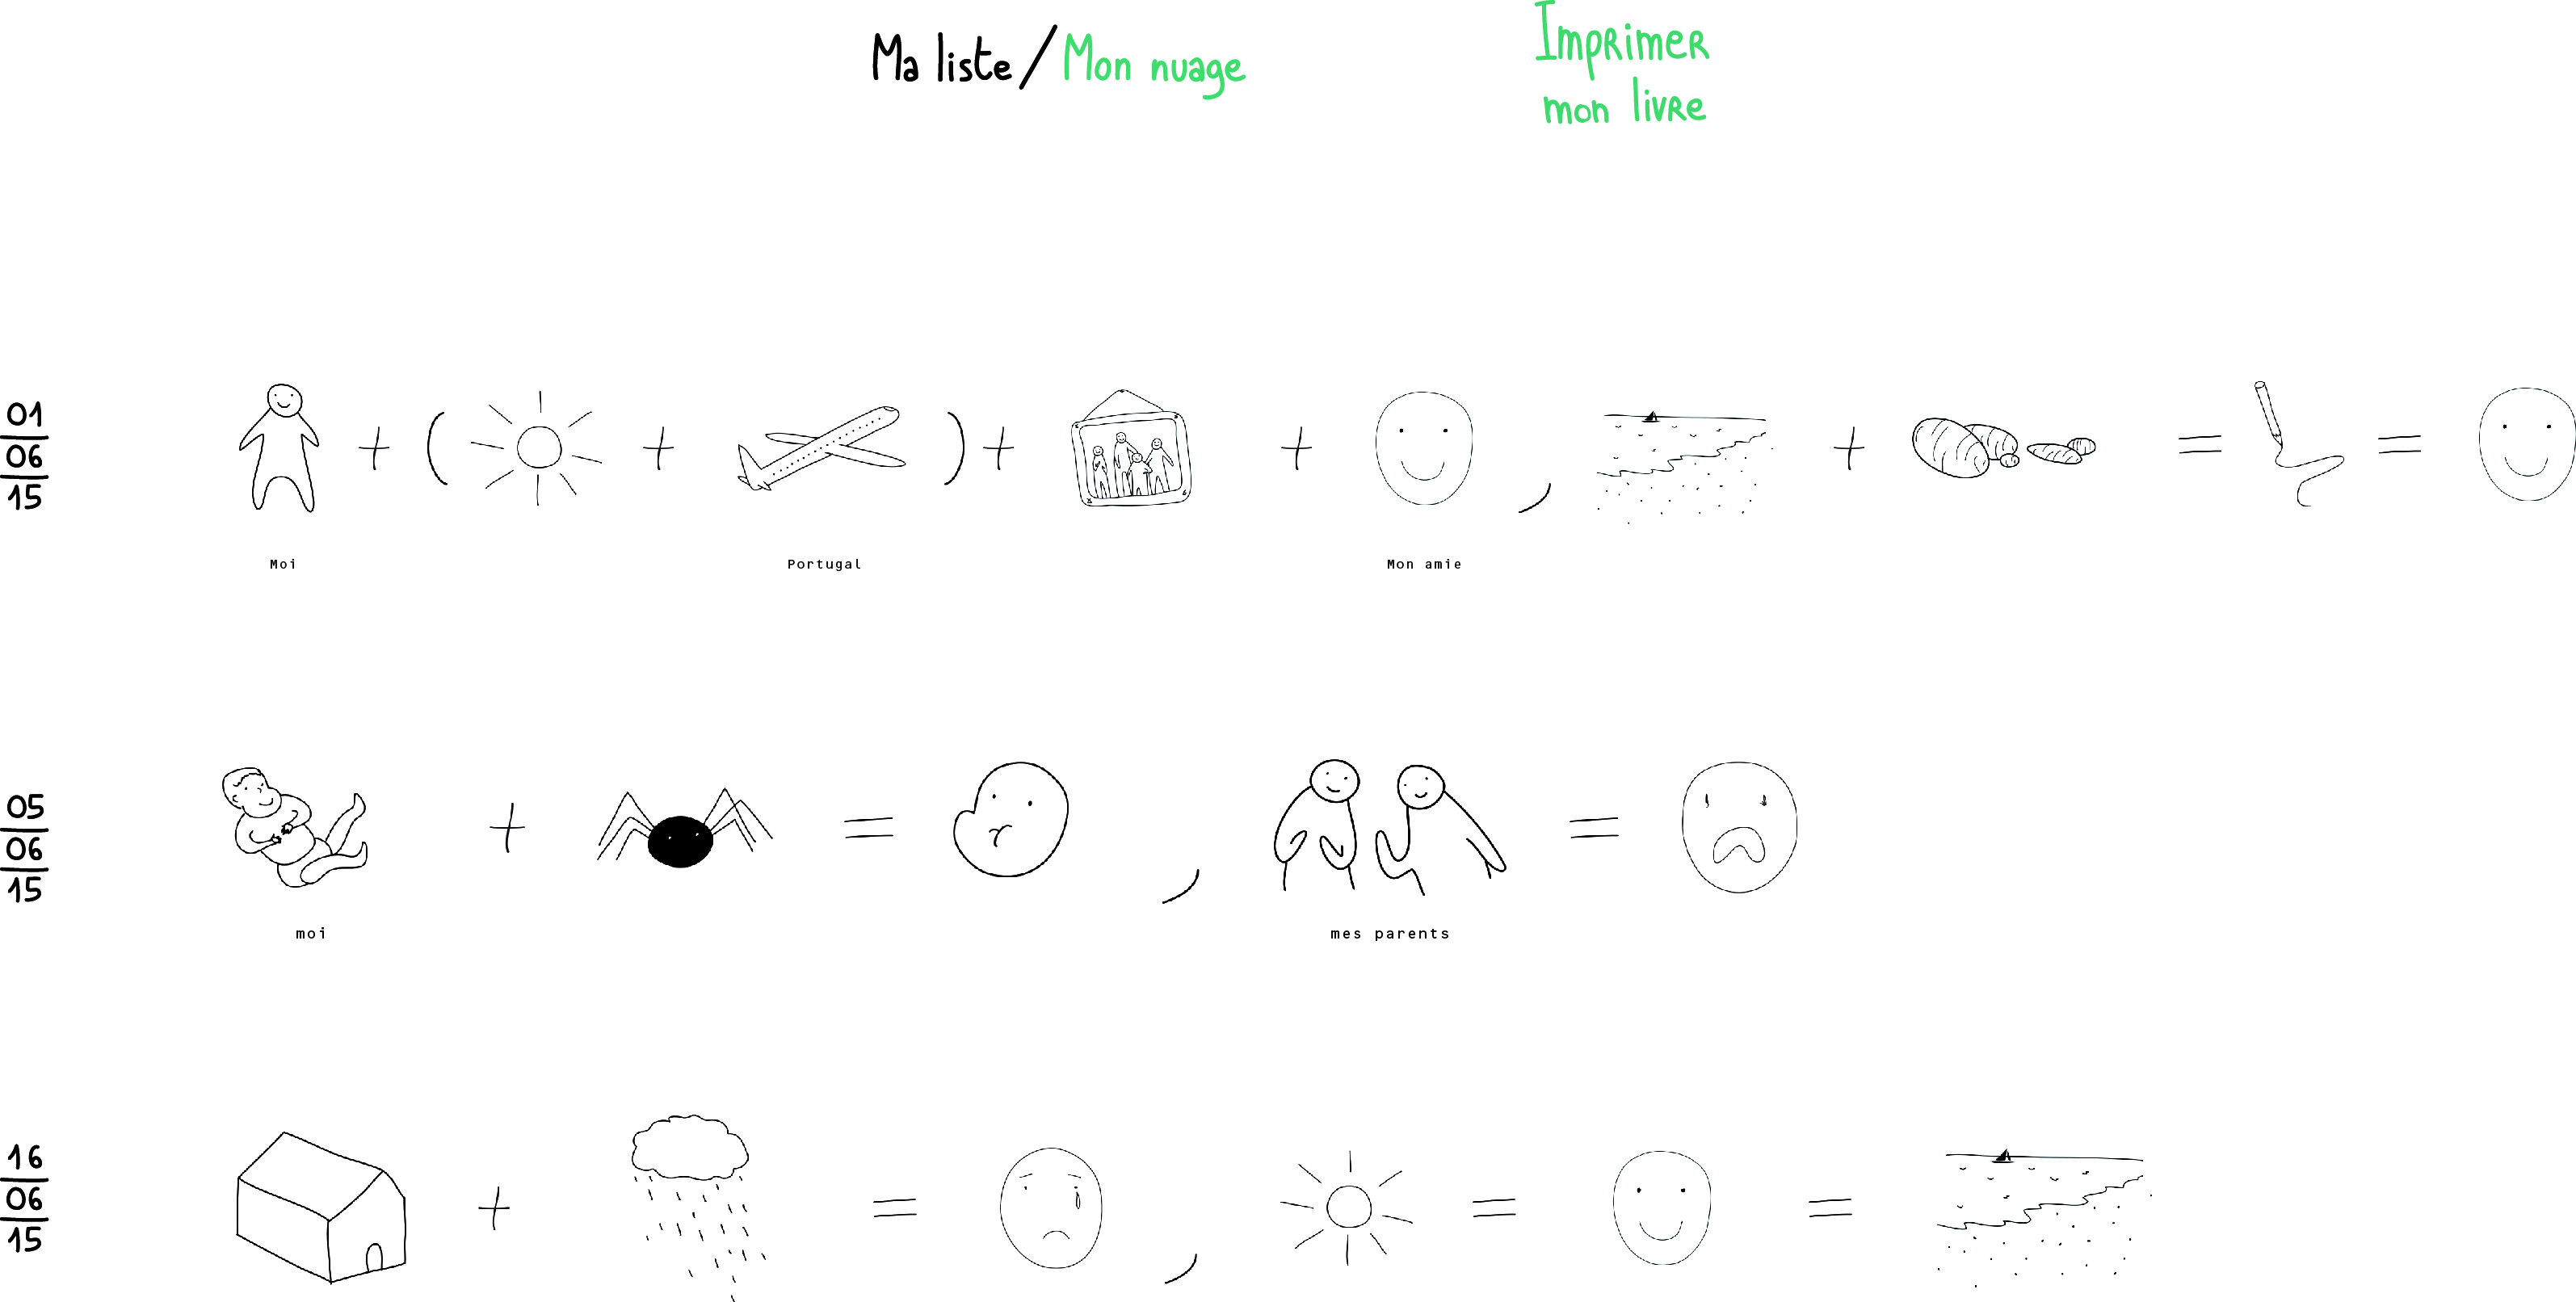 Ma liste / Mon nuage
Imprimer
mon livre
01
06
15
+ ( + ) + + , + = =
Moi Portugal Mon amie
05
06
15
+ = , =
moi mes parents
16
06
15
+ = , = =